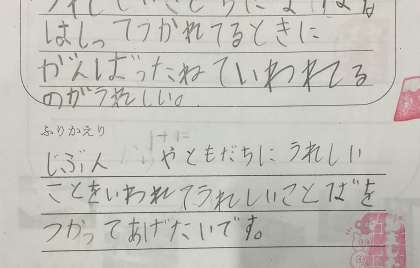 うれしいことばによけいな
はしってつかれてるときに
がんばったねていわれてる
のがうれしい。
ふりかえり
じぶん やともだちにうれしい
ことをいわれてうれしいことばを
つかってあげたいです。